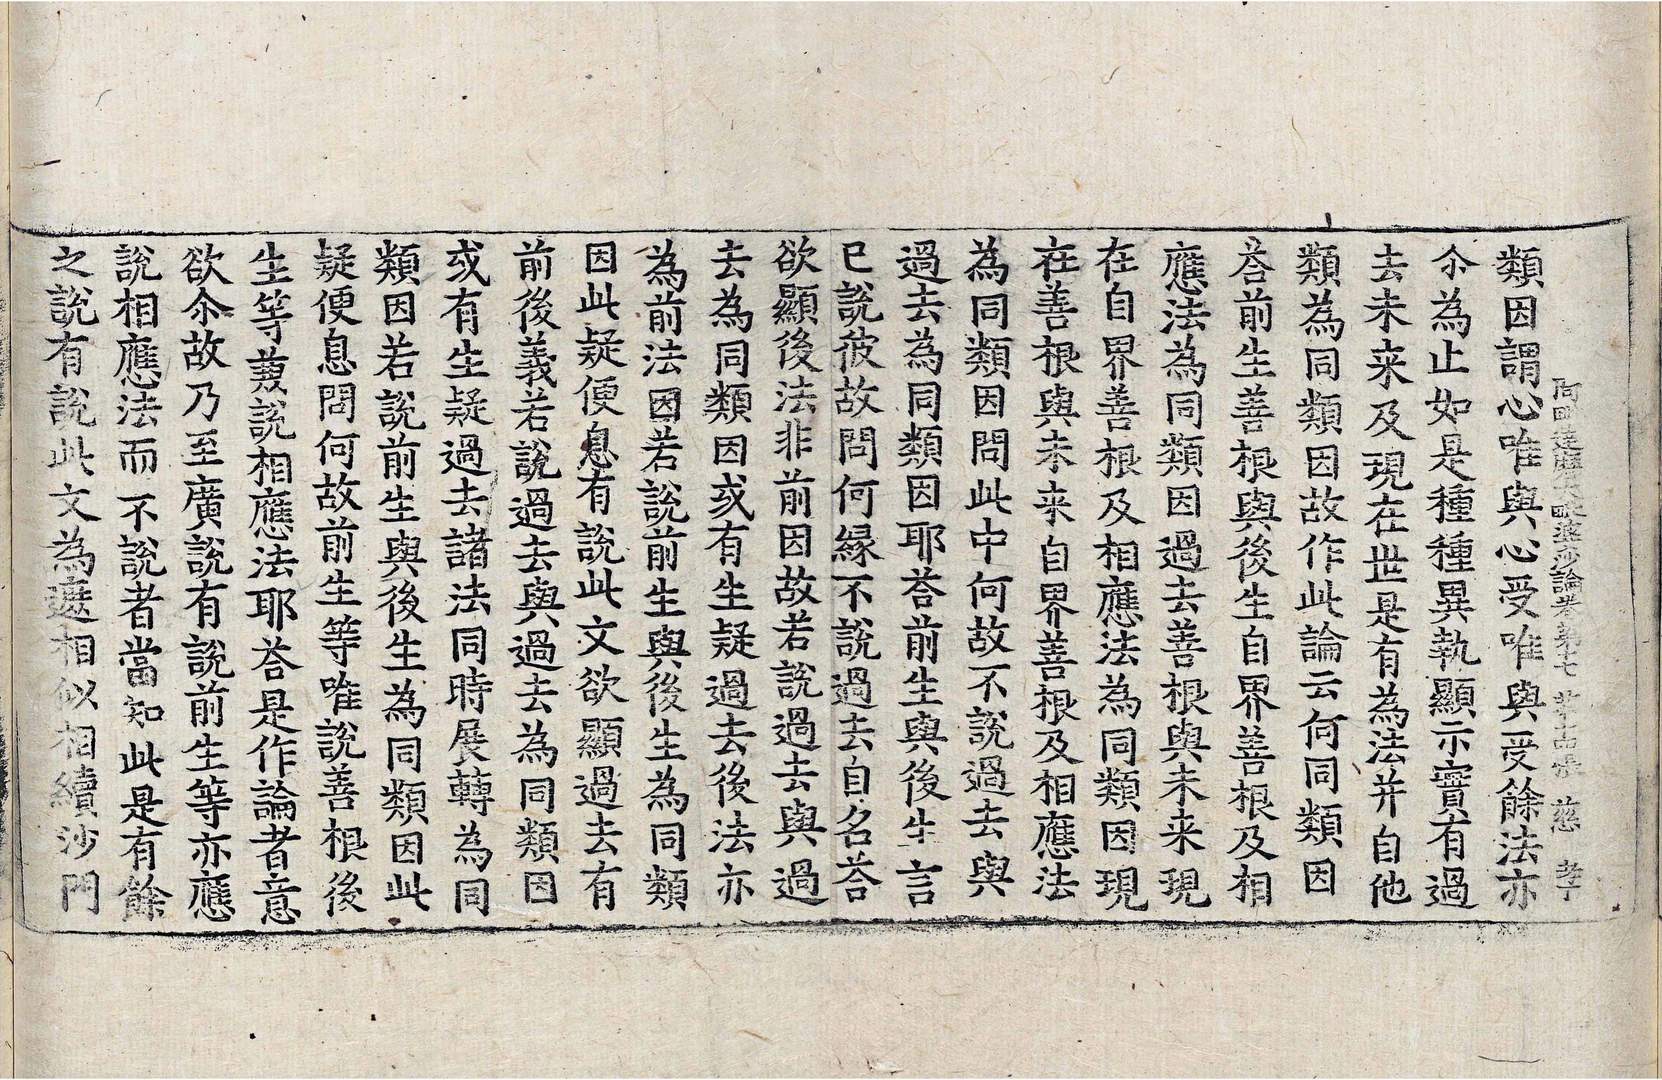 阿毗達磨大毗婆沙論卷第十七 第十古張 慈 孝子
類因謂心唯與心受唯與受餘法亦
尒為止如是種種異執顯示實有過
去未来及現在世是有為法并自他
類為同類因故作此論云何同類因
荅前生善根與後生自界善根及相
應法為同類因過去善根與未来現
在自界善根及相應法為同類因現
在善根與未来自界善根及相應法
為同類因問此中何故不說過去與
過去為同類因耶荅前生與後生言
已說彼故問何緣不說過去自名荅
欲顯後法非前因故若說過去與過
去為同類因或有生疑過去後法亦
為前法因若說前生與後生為同類
因此疑便息有說此文欲顯過去有
前後義若說過去與過去為同類因
或有生疑過去諸法同時展轉為同
類因若說前生與後生為同類因此
疑便息問何故前生等唯說善根後
生等蒹說相應法耶荅是作論者意
欲尒故乃至廣說有說前生等亦應
說相應法而不說者當知此是有餘
之說有說此文為遮相似相續沙門